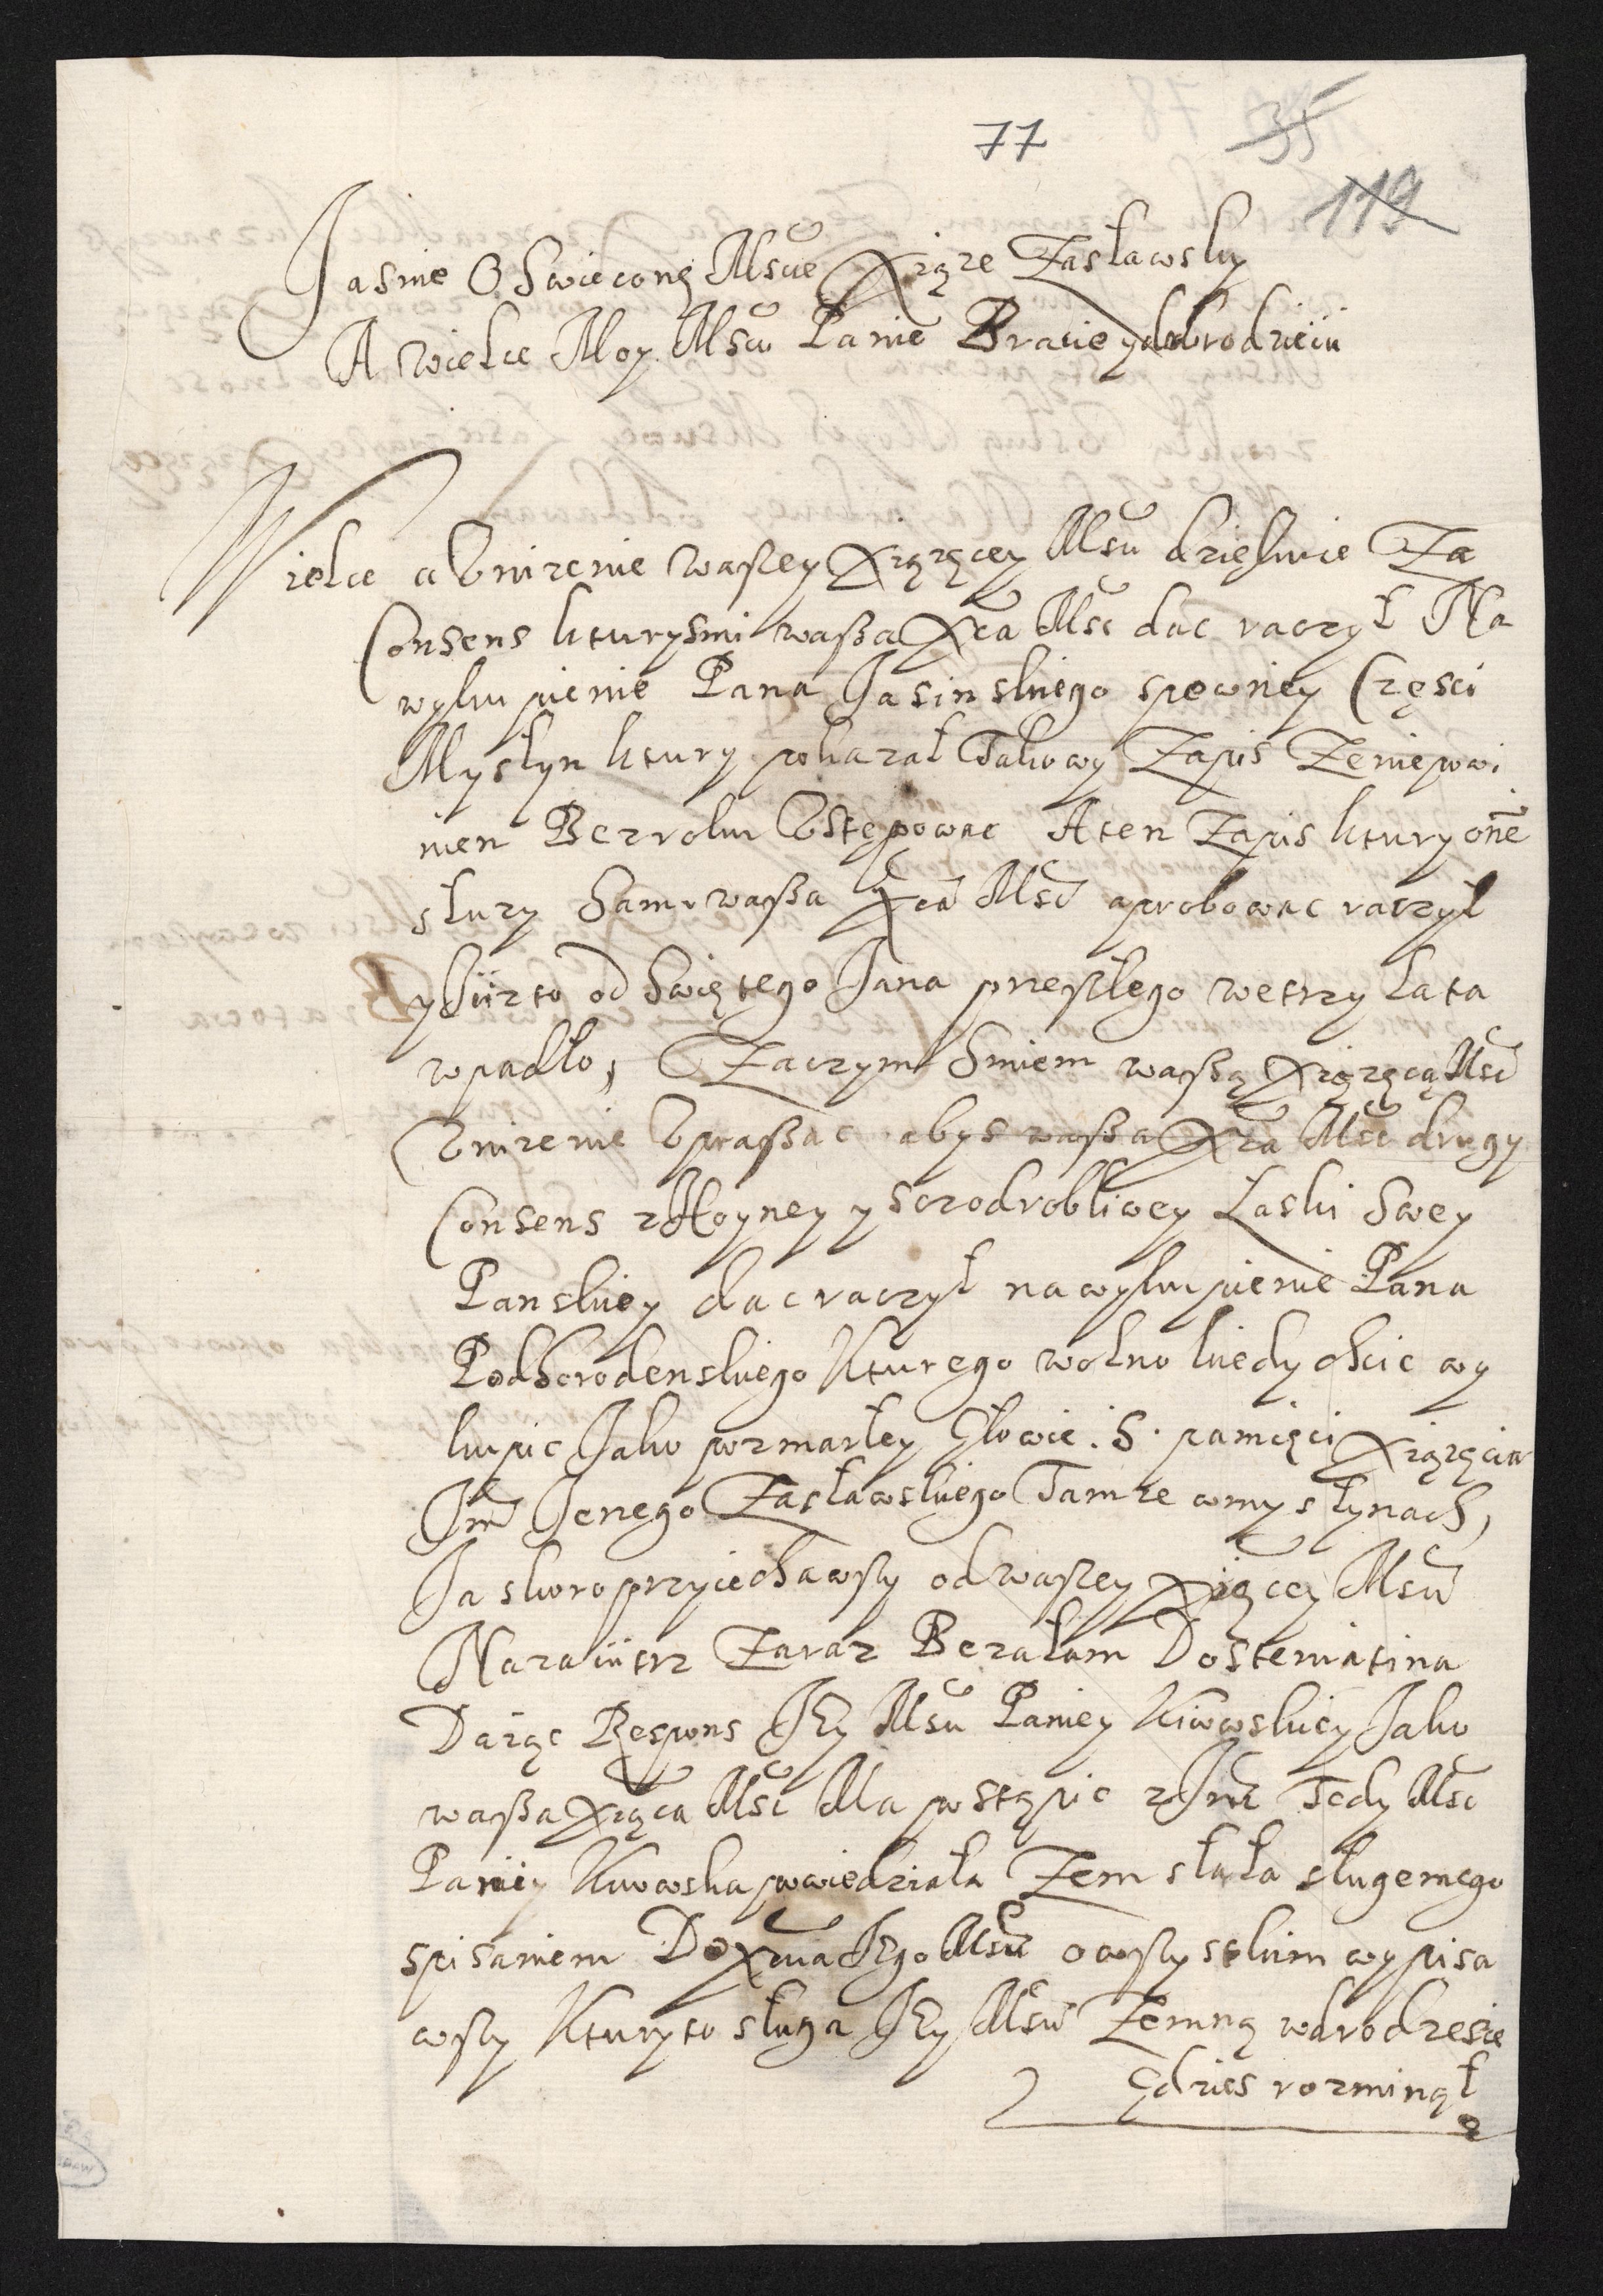 77
35
119
Jasnie Oswiecone Msciê Xiąże Zasławsky
A wielce Moy Msciw Panie Bracie y dobrodzieiu
Wielce a Vnizenie waszey Xiązęcey Msci dziękuie Za
Consens kturysmi wassa Xca Msc dac raczył Na
wykupienie Pana Jasinskiego spewney Częsci
Myslyn ktury pokazał Takowy Zapis Ze niepowi
nien Bez roku Vstępowac A ten Zapis ktury onem
słuzy Sami wassa Xca Msc aprobowac raczył
y Juz to od Swiętego Jana przeszłego we trzy Lata
wpadło, Zaczym Smiem wassą Xiązęcą Msc
Vnizenie Vprassac abys wassa Xca Msc drugy
Consens z Hoyney y sczodrobliwey Łaski Swey
Panskiey dac raczył na wykupienie Pana
Podhorodenskiego Kturego wolno kiedy chcic wy
kupic Jako po zmarłey Głowie. S. pamięci Xiązęcia
Jm Jerzego Zasławskiego Tamze w myslynach,
Ja skoro przyiechawszy od waszey Xiącey Msci
Nazaiutrz Zaraz Bezałam Do steniatina
Daiąc Respons JEy Msci Paniey Kiiowskiey Jako
wassa Xiąca Msc Ma postąpic z Jm Tedy Msc
Paniey Kiiowska powiedziała Zem słała sługe mego
spisaniem Do Xcia JEgo Msci o wszystkim wypisa
wszy Ktury to sługa JEy Msci Ze mną w drodze sie
Gdzies rozminął